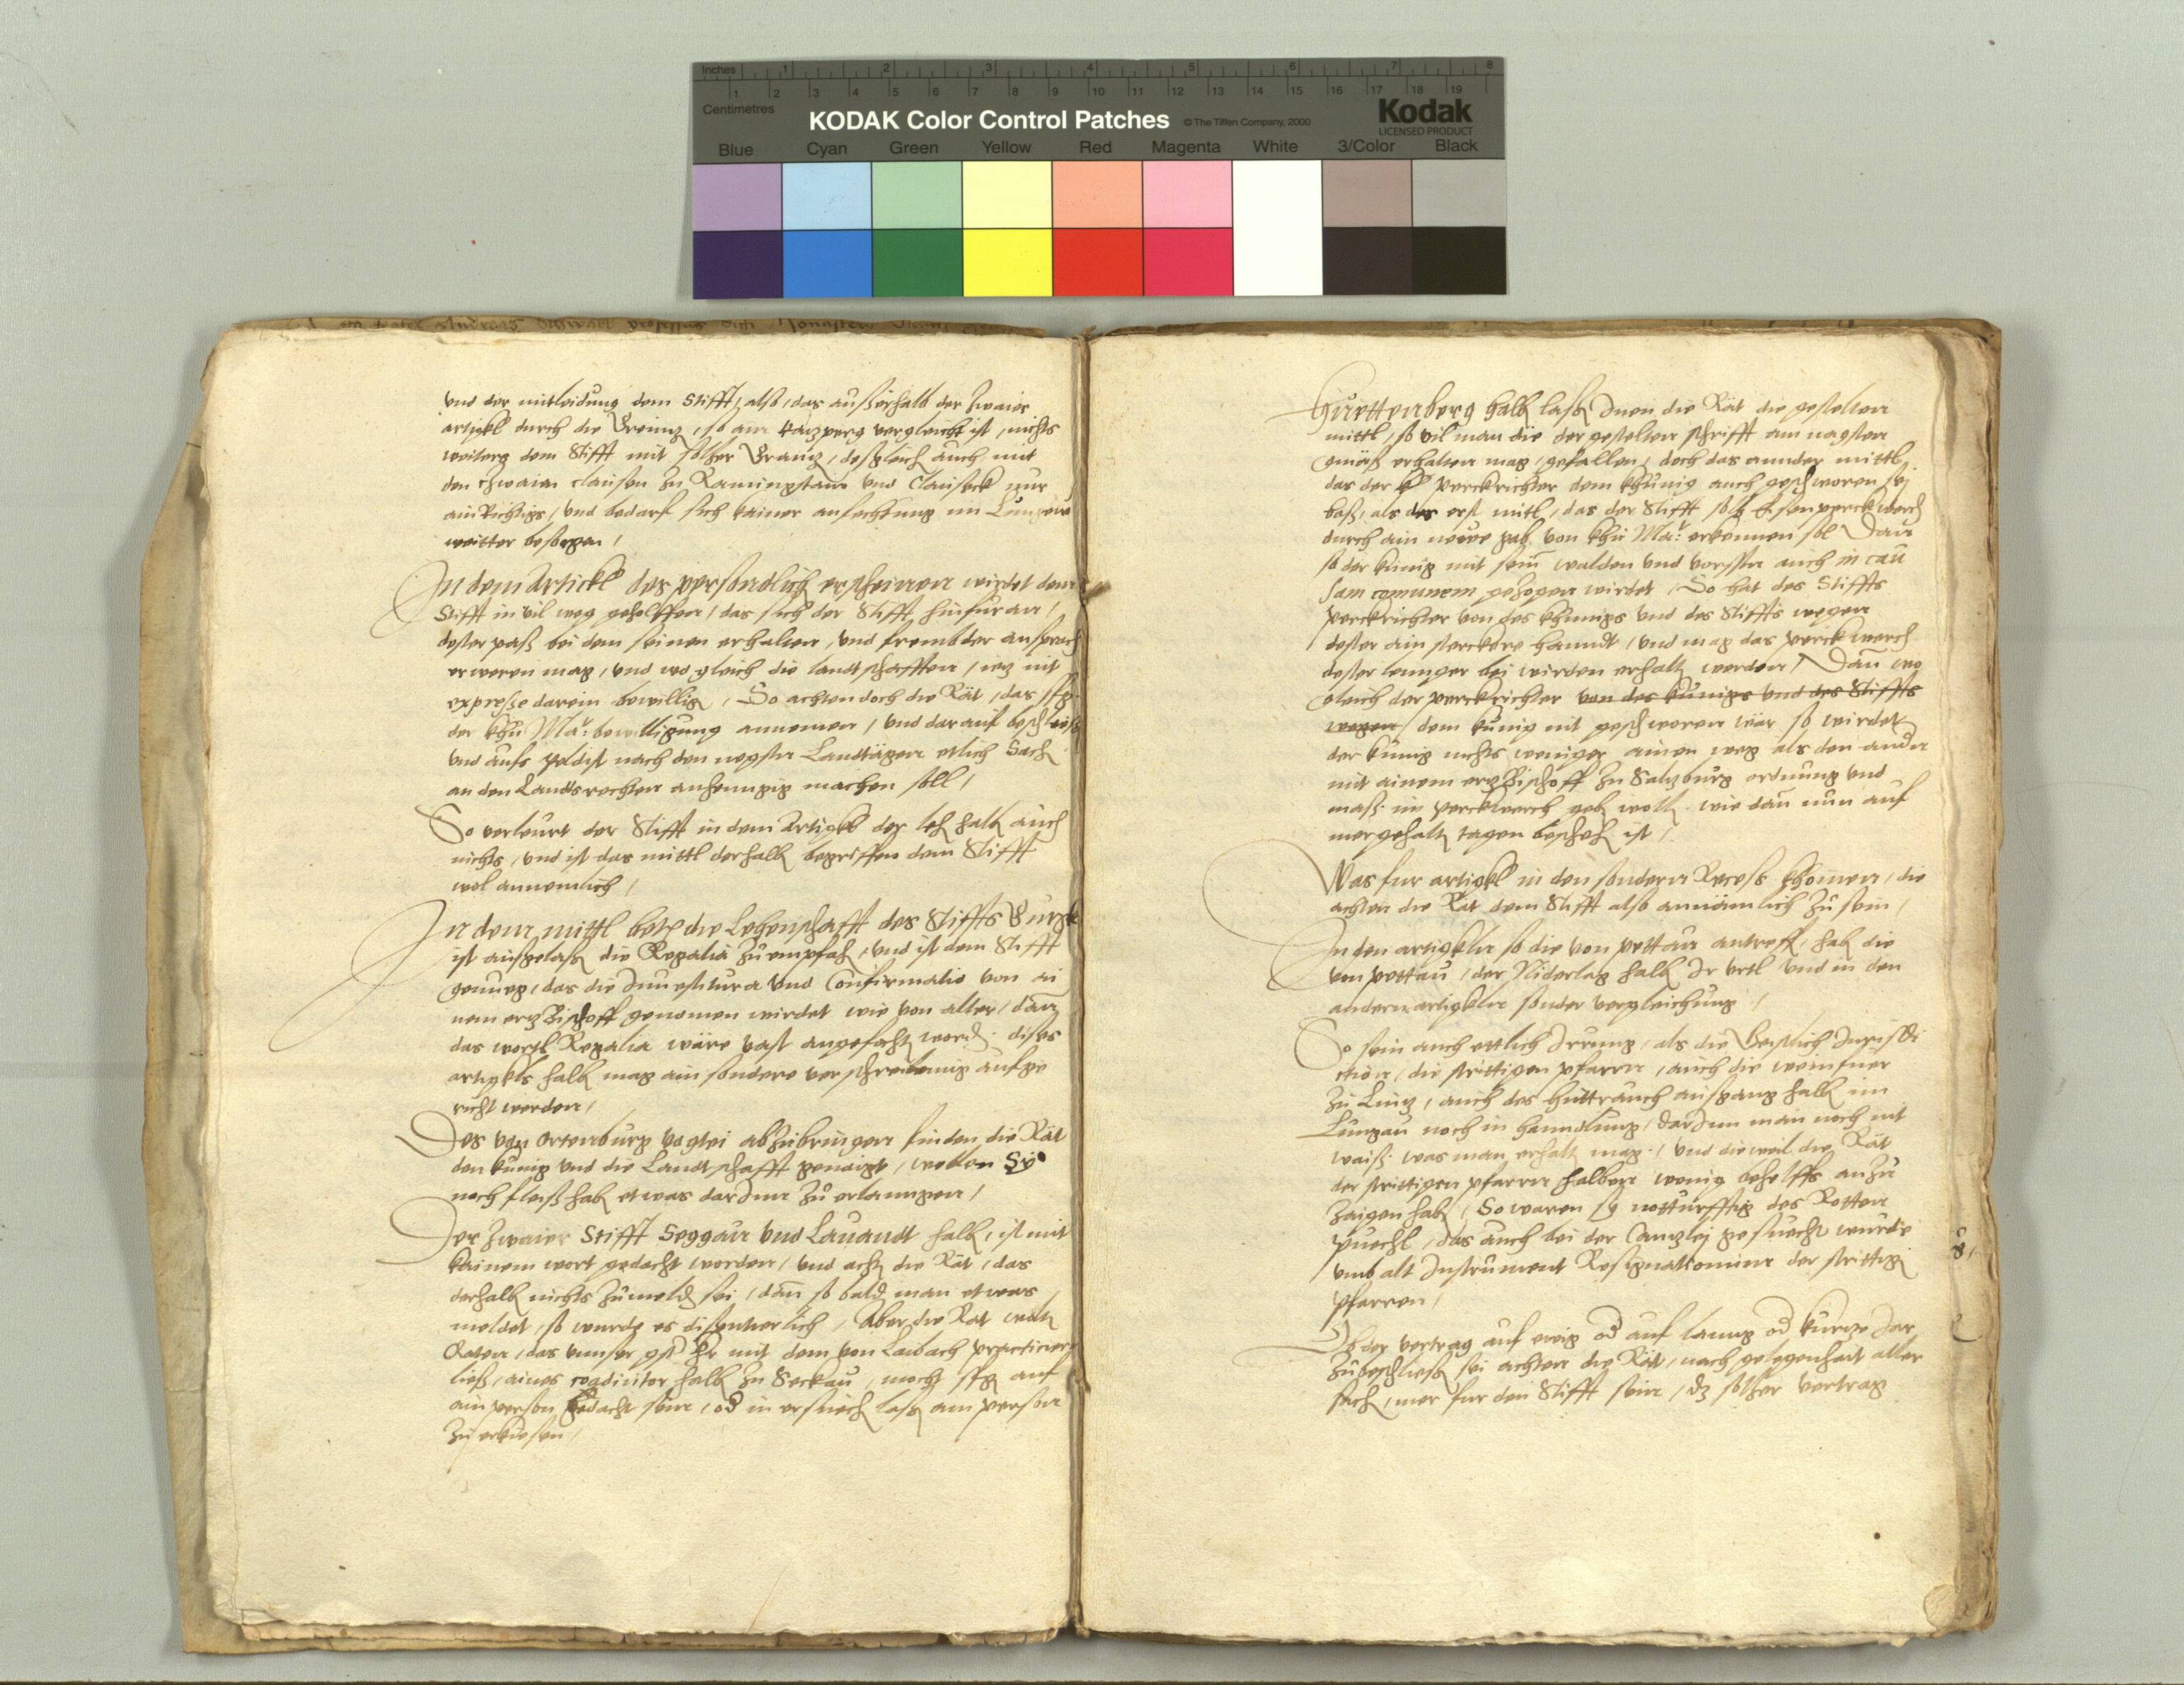 Inches 1 2 3 4 5 6 7 8
1 2 3 4 5 6 7 8 9 10 11 12 13 14 15 16 17 18 19
Centimetres
KODAK Color Control Patches © The Tiffen Company, 2000 Kodak
LICENSED PRODUCT
Blue Cyan Green Yellow Red Magenta White 3/Color Black
vnd der mitleidung dem Stifft, also, das ausserhalb der zwaier
artigkl durch die Greinitz, so am Karzperg vergleicht ist, nichts
weiters dem Stifft mit solher Granitz, desgleich auch mit
den zwaien clausen zu Ramingstain vnd Clauseck nur
ain Richtigs, vnd bedarf sich kainer anfechtung im Lungew
weitter besorgen /
In dem Artickl des persondlich erscheinen wirdet dem
Stifft in vil weg geholffen, das sich der Stifft hinfuran,
dester pass bei dem seinen erhalten, vnd frembder ansprach
erweren mag, vnd wo gleich die landtschafften, ietz nit
expresse darein bewillig, So achten doch die Rät, das
der khu: Ma:t bewilligung annemen, vnd darauf beschliess
vnd aufs peldist nach den negsten Landtägen etlich Sach
an den Landsrechten anhenngig machen soll /
So verleurt der Stifft in dem Artigkl der leh halb auch
nichts, vnd ist das mittl derhalb begriffen dem Stifft
wol annemlich /
In dem mittl betr die Lehenschafft des Stiffts Gurgk
ist ausgelass die Regalia zu empfah, vnd ist dem Stifft
genueg, das die Inuestitura vnd Confirmatio von ai
nem ertzBischoff genomen wirdet wie von alter, dan
das wortl Regalia wäre vast angefocht word. dises
artigkls halb mag ain sondere verschreibung aufge
richt werden /
Des von Ortenburg vogtei abzubringen finden die Rät
den kunig vnd die Landtschafft genaigt, wellen Sy
noch fleiss hab etwas darInn zu erlanngen /
Der zwaier Stifft Seggau vnd Lauandt halb, ist mit
kainem wort gedacht worden, vnd acht die Rät, das
derhalb nichts zumeld sei, dan so bald man etwas
meldet, so wurde es disputierlich, Aber die Rät
Raten, das vnnser gst h:r mit dem von Laibach practiciern
liess, aines coadiutor halb zu Seckau, mocht auf
ain person bedacht sein, od in ersuech lass ain person
zu erkiesen /
Huettenberg halb lass Inen die Rät die gestelten
mittl, so vil man die der gestelten schrifft am nagsten
gmäss erhalten mag, gefallen, doch das annder mittl
das der perckrichter dem khunig auch geschworen sei
bass, als das erst mitl, das der Stifft solh Eisenperckwerch
durch ain newe gab von khu: Ma:t erkennen sol Dan
so der kunig mit sein walden vnd vorsten auch in cau
sam comunem gezogen wirdet, So hat des Stiffts
perckrichter von des khunigs vnd des Stiffts wegen
dester ain sterckere hanndt, vnd mag das perckwerch
dester lennger bei wirden erhalt werden / Dan wo
gleich der perckrichter von des kunigs vnd des Stiffts
wegen / dem kunig nit geschworen wär so wirdet
der kunig nichts weniger ainen weg als den andn
mit ainem ertzBischoff zu Saltzburg ordnung vnd
mass im perckwerch geb woll. wie dan nun auf
mergehalt tagen bescheh ist /
Was fur artigkl in den sondern Recess khomen, die
achten die Rät dem Stifft also annämlich zu sein /
In den artigkln so die von pettau antreff, hab die
von pettau, der Niderlag halb Ir vrtl vnd in den
andern artigkln sonder vergleichung /
So sein auch ettlich Irrung, als die Geistlich Jurisdi
ction, die strittigen pfarrn, auch die weinfuer
zu Lintz, auch des huttrauch ausgang halb im
Lungau noch in hanndlung, darInn man noch nit
waiss. was man erhalt mag /, vnd dieweil die Rät
der strittigen pfarrn halben wenig behelffs anzu
zaigen hab, So waren sy notturfftig des Rotten
puechl, das auch bei der Cantzlej gesuecht wurde
vmb alt Instrument Resignationum der strittig
pfarren /
Ob der vertrag auf ewig od auf lanng od kurtze Jar
zubeschliess sei achten die Rät, nach gelegenhait aller
sach, mer fur den Stifft sein, dz solher vertrag